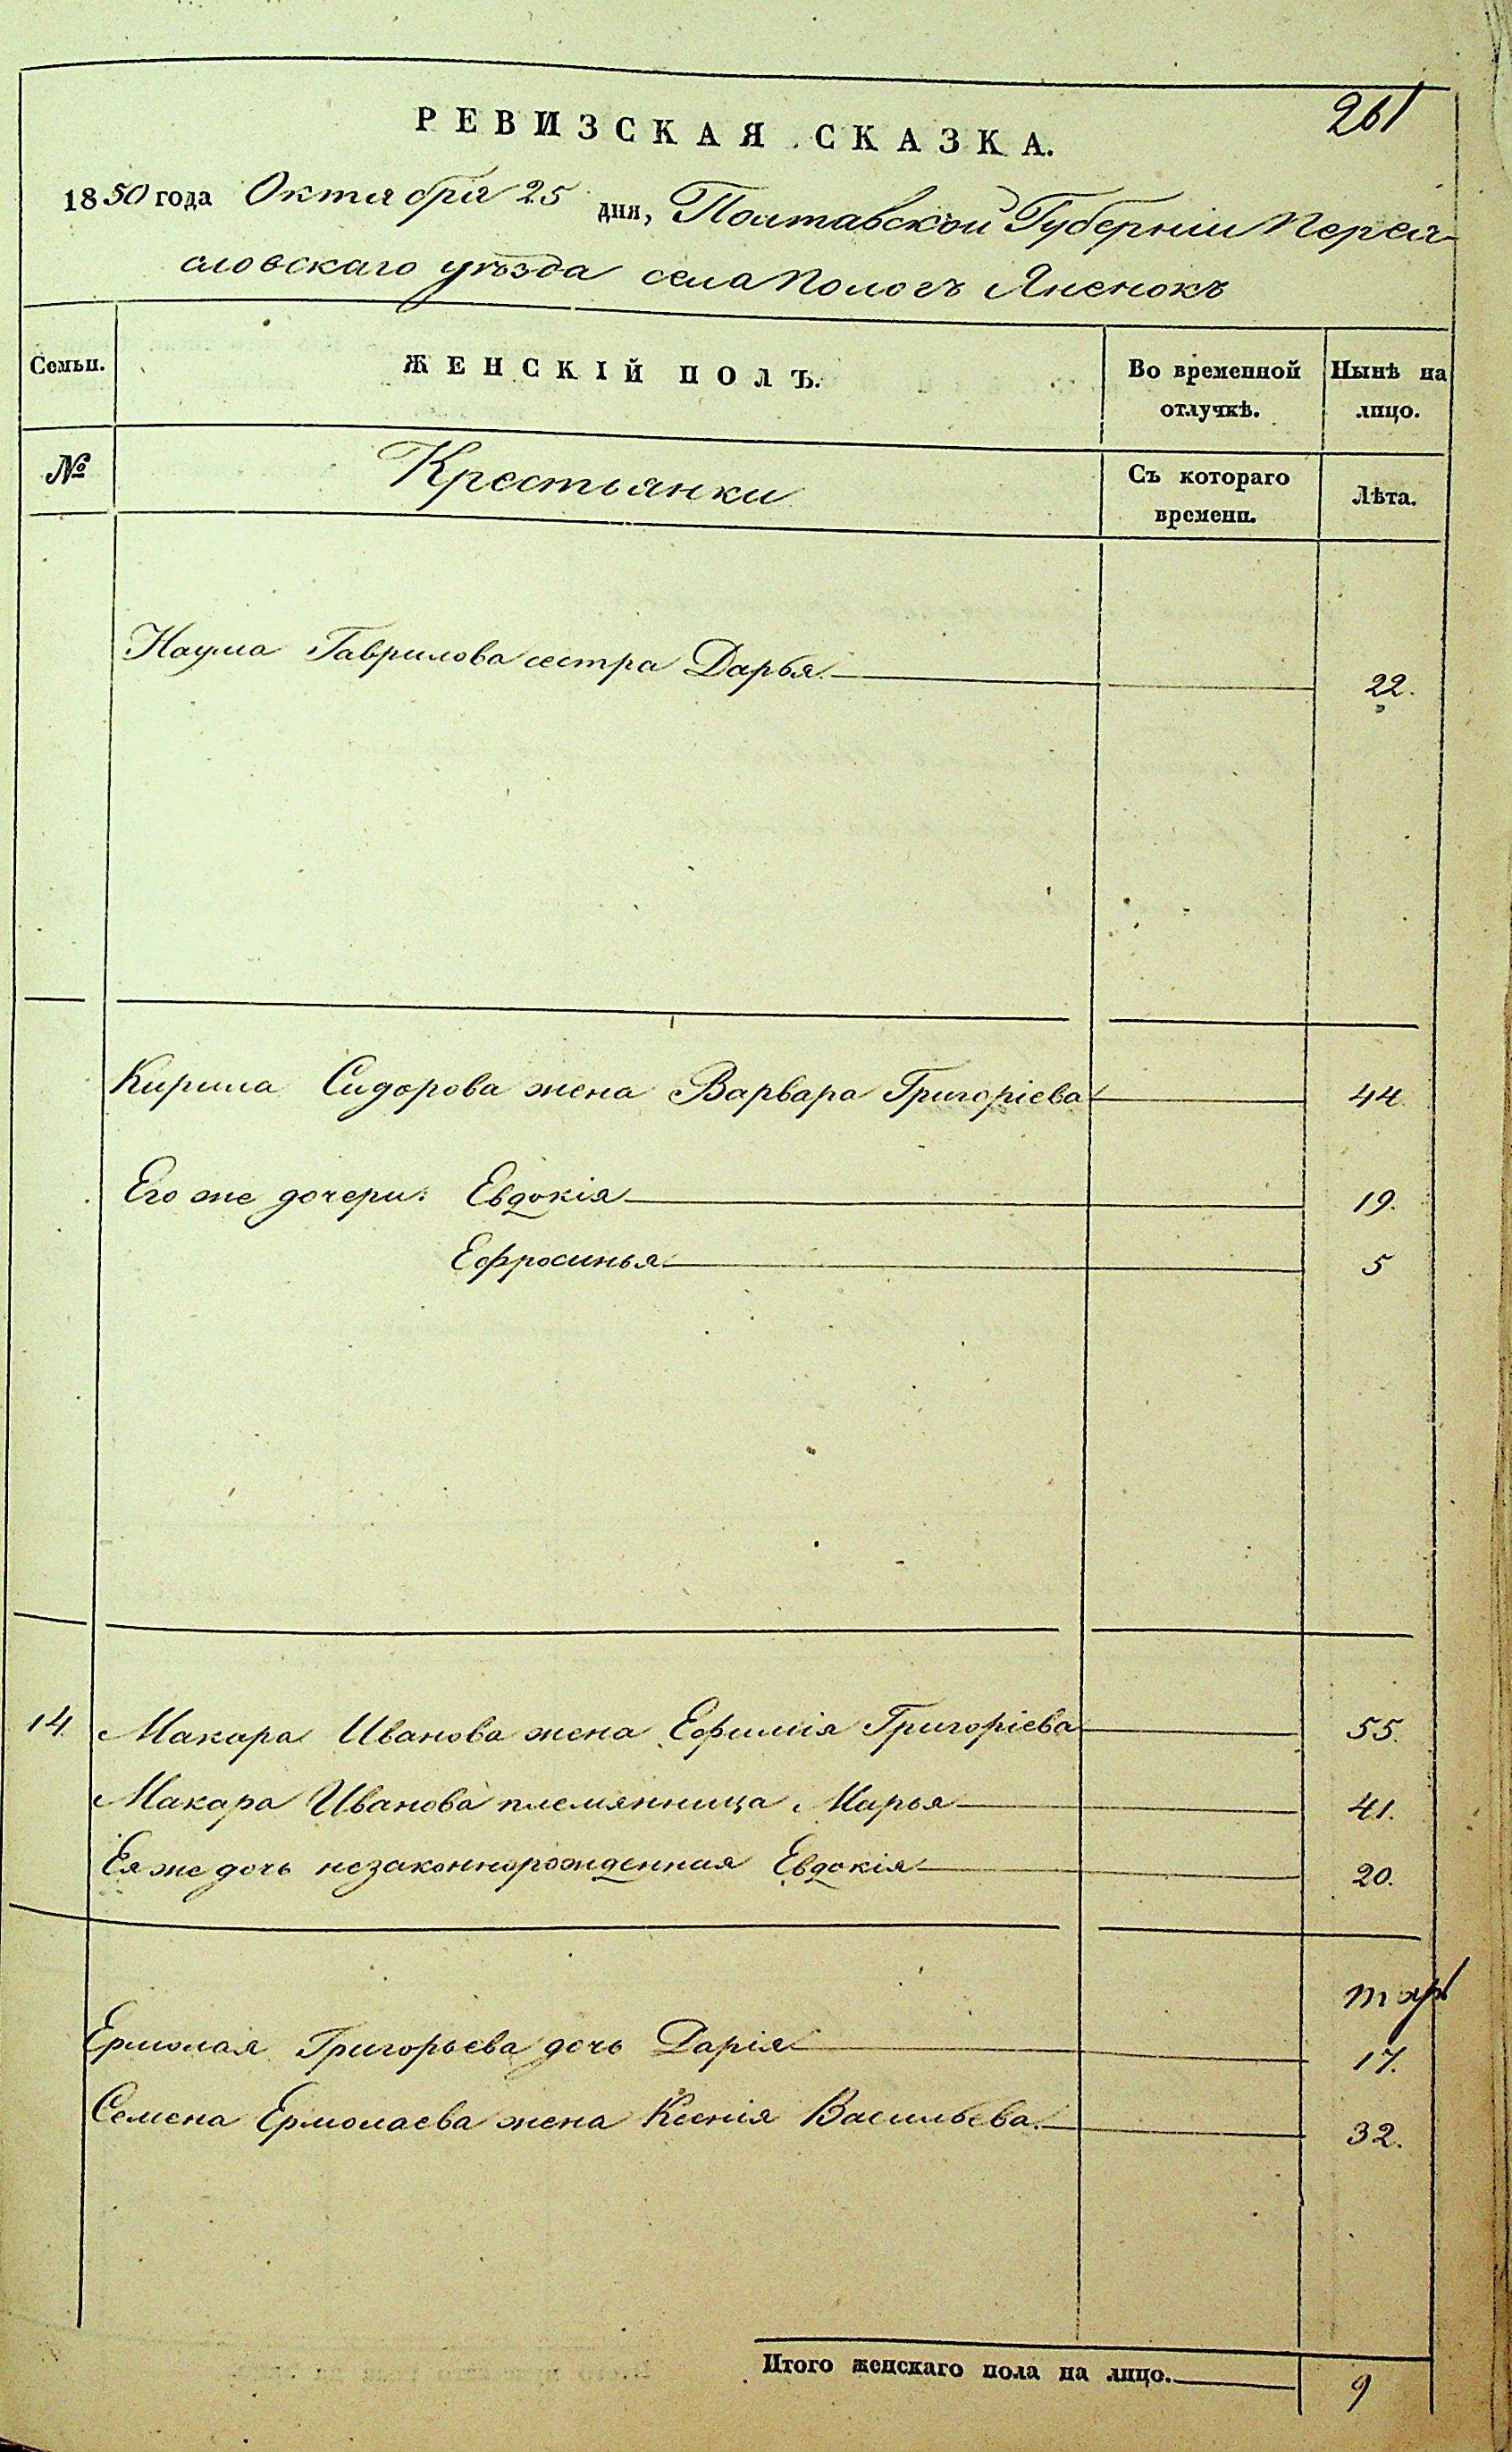 261
РЕВИЗСКАЯ СКАЗКА.
1850 года Октября 25 дня, Полтавской Губерніи Перея-
словскаго уѣзда села Пологъ Яненокъ
Семьи.
ЖЕНСКІЙ ПОЛЪ.
Во временной отлучкѣ.
Нынѣ на лицо.
№
Крестьянки
Съ котораго времени.
Лѣта.
Наума Гаврилова сестра Дарья 22.
Кирила Сидорова жена Варвара Григоріева 44.
Его же дочери: Евдокія 19.
Ефросинья 5
14. Макара Иванова жена Ефимія Григоріева 55.
Макара Иванова племянница Марья 41.
Ея же дочь незаконнорожденная Евдокія 20.
Ермолая Григорьева дочь Дарія 17.
Семена Ермолаева жена Ксенія Васильева 32.
Итого женскаго пола на лицо. 9